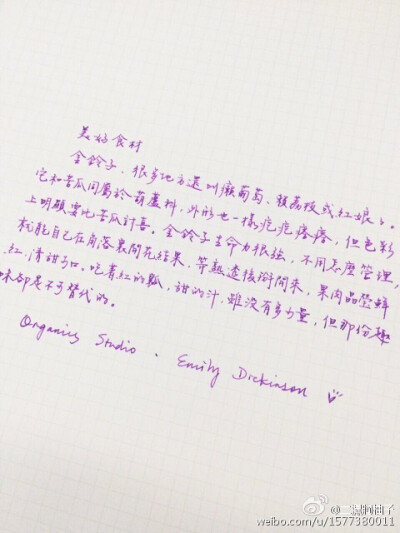 美好食材
金鈴子，很多地方還叫癩葡萄、賴荔枝或紅娘。
它和苦瓜同屬於葫蘆科，外形也一樣疙疙瘩瘩，但色彩
上明顯要比苦瓜討喜。金鈴子生命力很強，不用怎麼管理，
就能自己在角落裏開花結果，等熟透後掰開來，果肉晶瑩鮮
紅，清甜可口。吃着紅的瓤，甜的汁，雖沒有多少量，但那份趣
味却是不可替代的。
Organics Studio . Emily Dickinson
weibo.com/u/1577380011